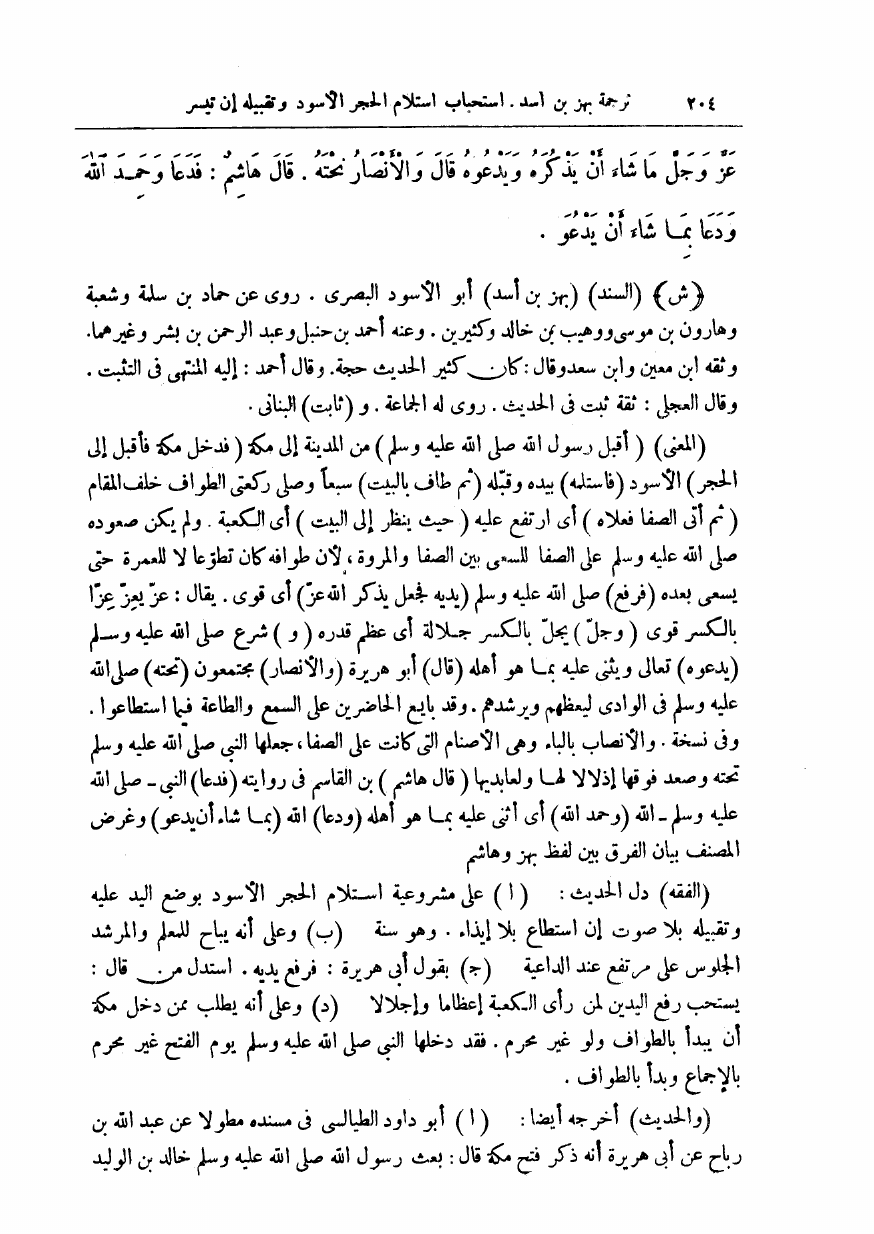 ٢٠٤ ترجمة بهز بن أسد . استحباب استلام الحجر الأسود وتقبيله إن تيسر
عَزَّ وَجَلَّ مَا شَاءَ أَنْ يَذْكُرَهُ وَيَدْعُوهُ قَالَ وَالْأَنْصَارُ تَحْتَهُ . قَالَ هَاشِمٌ : فَدَعَا وَحَمِدَ اللهَ
وَدَعَا بِمَا شَاءَ أَنْ يَدْعُوَ .
﴿ش﴾ (السند) (بهز بن أسد) أبو الأسود البصرى . روى عن حماد بن سلمة وشعبة
وهارون بن موسى ووهيب بن خالد وكثيرين . وعنه أحمد بن حنبل وعبد الرحمن بن بشر وغيرهما.
وثقه ابن معين وابن سعد وقال : كان كثير الحديث حجة. وقال أحمد : إليه المنتهى فى التثبت .
وقال العجلى : ثقة ثبت فى الحديث . روى له الجماعة . و (ثابت) البنانى .
(المعنى) ( أقبل رسول الله صلى الله عليه وسلم ) من المدينة إلى مكة ( فدخل مكة فأقبل إلى
الحجر ) الأسود (فاستلمه) بيده وقبّله (ثم طاف بالبيت) سبعاً وصلى ركعتى الطواف خلف المقام
( ثم أتى الصفا فعلاه ) أى ارتفع عليه ( حيث ينظر إلى البيت ) أى الكعبة . ولم يكن صعوده
صلى الله عليه وسلم على الصفا للسعى بين الصفا والمروة ، لأن طوافه كان تطوّعا لا للعمرة حتى
يسعى بعده (فرفع) صلى الله عليه وسلم (يديه فجعل يذكر الله عزّ) أى قوى . يقال : عزّ يعِزّ عِزّا
بالكسر قوى ( وجلّ ) يجلّ بالكسر جلالة أى عظم قدره ( و ) شرع صلى الله عليه وسلم
(يدعوه) تعالى ويثنى عليه بما هو أهله (قال) أبو هريرة (والأنصار) مجتمعون (تحته) صلى الله
عليه وسلم فى الوادى ليعظهم ويرشدهم . وقد بايع الحاضرين على السمع والطاعة فيما استطاعوا .
وفى نسخة . والأنصاب بالباء وهى الأصنام التى كانت على الصفا ، جعلها النبى صلى الله عليه وسلم
تحته وصعد فوقها إذلالا لها ولعابديها ( قال هاشم ) بن القاسم فى روايته (فدعا) النبى ـ صلى الله
عليه وسلم ـ الله (وحمد الله) أى أثنى عليه بما هو أهله (ودعا) الله (بما شاء أن يدعو) وغرض
المصنف بيان الفرق بين لفظ بهز وهاشم
(الفقه) دل الحديث : ( ا ) على مشروعية استلام الحجر الأسود بوضع اليد عليه
وتقبيله بلا صوت إن استطاع بلا إيذاء . وهو سنة (ب) وعلى أنه يباح للمعلم والمرشد
الجلوس على مرتفع عند الداعية (ج) بقول أبى هريرة : فرفع يديه . استدل من قال :
يستحب رفع اليدين لمن رأى الكعبة إعظاما وإجلالا (د) وعلى أنه يطلب ممن دخل مكة
أن يبدأ بالطواف ولو غير محرم . فقد دخلها النبى صلى الله عليه وسلم يوم الفتح غير محرم
بالإجماع وبدأ بالطواف .
(والحديث) أخرجه أيضا : ( ا ) أبو داود الطيالسى فى مسنده مطولا عن عبد الله بن
رباح عن أبى هريرة أنه ذكر فتح مكة قال : بعث رسول الله صلى الله عليه وسلم خالد بن الوليد